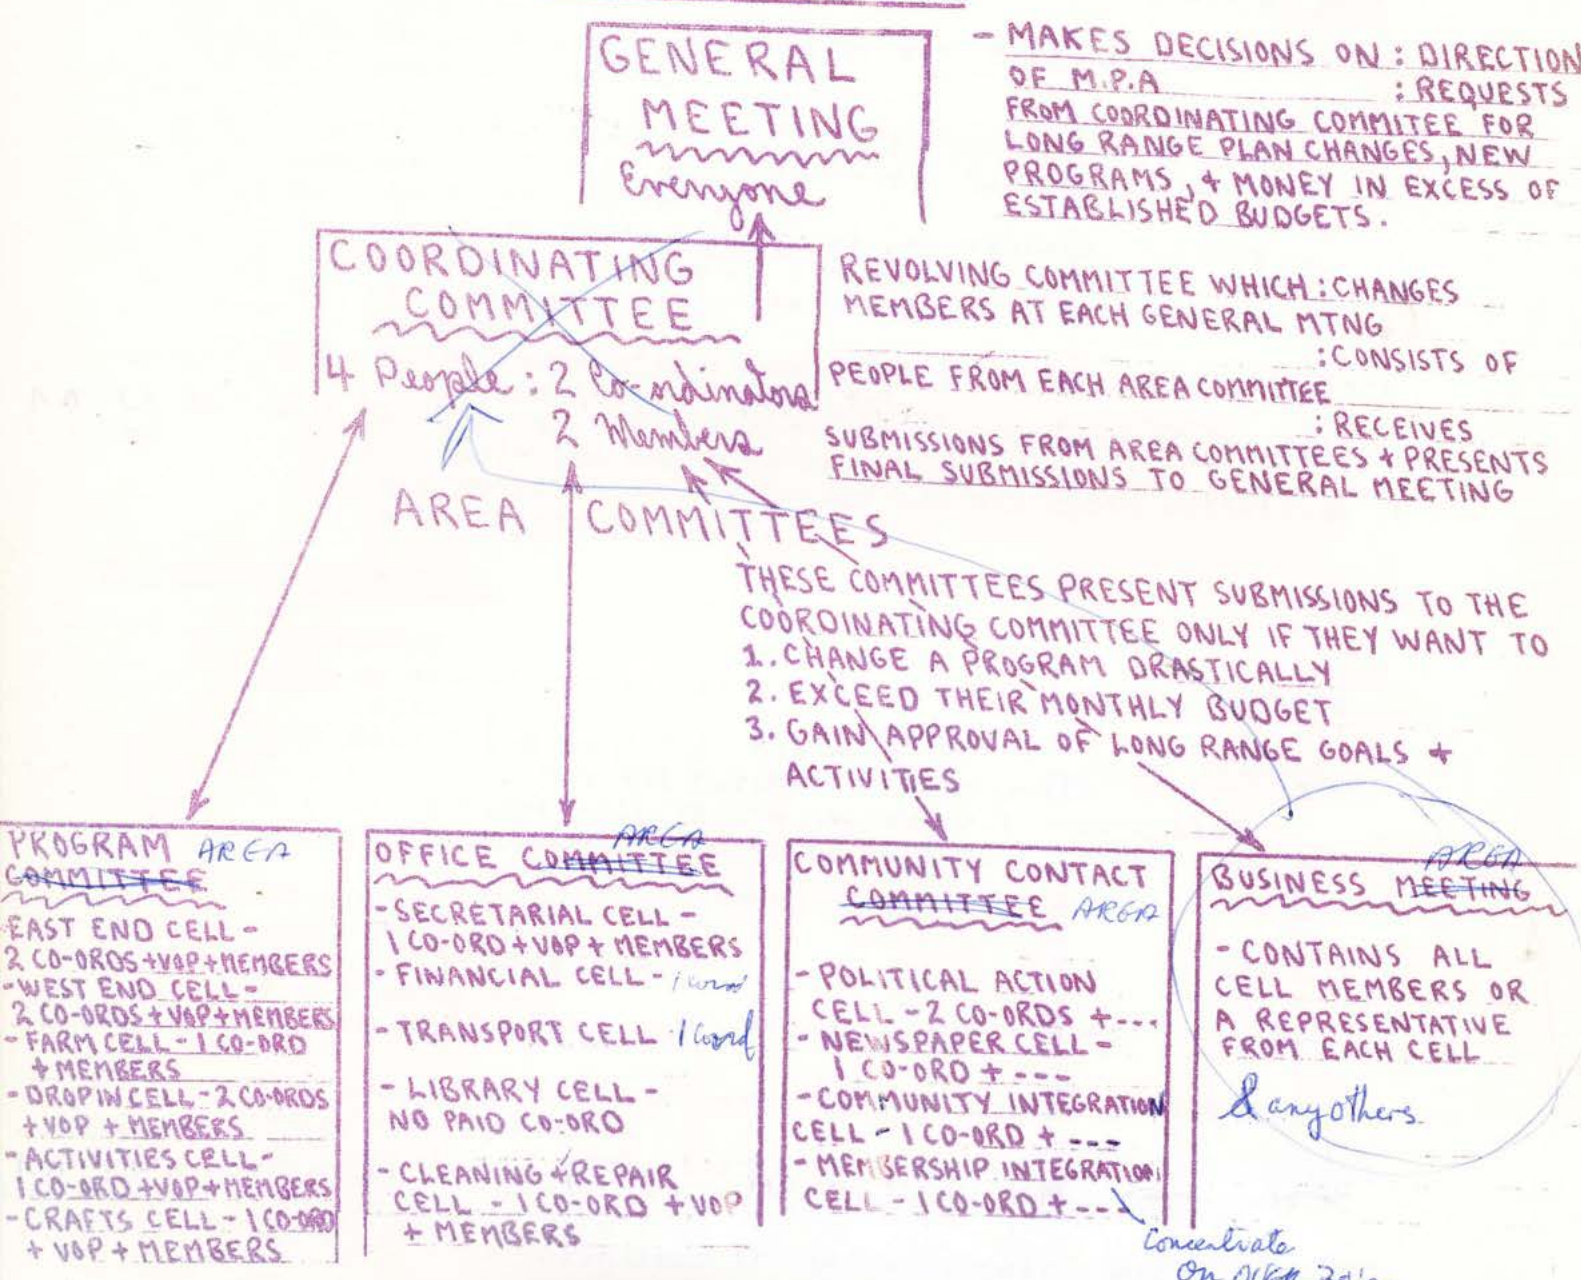 GENERAL
MEETING
Everyone
- MAKES DECISIONS ON : DIRECTION
OF M.P.A : REQUESTS
FROM COORDINATING COMMITEE FOR
LONG RANGE PLAN CHANGES, NEW
PROGRAMS, & MONEY IN EXCESS OF
ESTABLISHED BUDGETS.
COORDINATING
COMMITTEE
4 People : 2 Co-ordinators
2 Members
REVOLVING COMMITTEE WHICH : CHANGES
MEMBERS AT EACH GENERAL MTNG
: CONSISTS OF
PEOPLE FROM EACH AREA COMMITTEE
: RECEIVES
SUBMISSIONS FROM AREA COMMITTEES & PRESENTS
FINAL SUBMISSIONS TO GENERAL MEETING
AREA COMMITTEES
THESE COMMITTEES PRESENT SUBMISSIONS TO THE
COORDINATING COMMITTEE ONLY IF THEY WANT TO
1. CHANGE A PROGRAM DRASTICALLY
2. EXCEED THEIR MONTHLY BUDGET
3. GAIN APPROVAL OF LONG RANGE GOALS &
ACTIVITIES
PROGRAM AREA
COMMITTEE
EAST END CELL -
2 CO-ORDS + VOP + MEMBERS
- WEST END CELL -
2 CO-ORDS + VOP + MEMBERS
- FARM CELL - 1 CO-ORD
+ MEMBERS
- DROPIN CELL - 2 CO-ORDS
+ VOP + MEMBERS
- ACTIVITIES CELL -
1 CO-ORD + VOP + MEMBERS
- CRAFTS CELL - 1 CO-ORD
+ VOP + MEMBERS
AREA
OFFICE COMMITTEE
- SECRETARIAL CELL -
1 CO-ORD + VOP + MEMBERS
- FINANCIAL CELL - 1 coord
- TRANSPORT CELL - 1 coord
- LIBRARY CELL -
NO PAID CO-ORD
- CLEANING + REPAIR
CELL - 1 CO-ORD + VOP
+ MEMBERS
COMMUNITY CONTACT
COMMITTEE AREA
- POLITICAL ACTION
CELL - 2 CO-ORDS + ---
- NEWSPAPER CELL -
1 CO-ORD + ---
- COMMUNITY INTEGRATION
CELL - 1 CO-ORD + ---
- MEMBERSHIP INTEGRATION
CELL - 1 CO-ORD + ---
Concentrate
on over
AREA
BUSINESS MEETING
- CONTAINS ALL
CELL MEMBERS OR
A REPRESENTATIVE
FROM EACH CELL
& any others